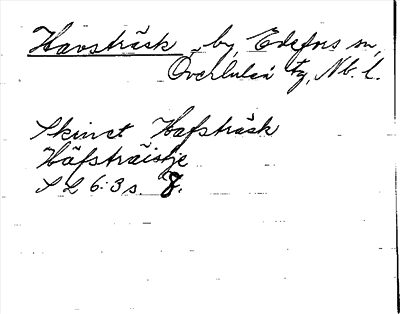 Havsträsk, by, Edefors sn,
Överluleå tg, Nb. l.
Skinet Hafsträsk
Häfsträiskje
S L 6:3 s. 8.